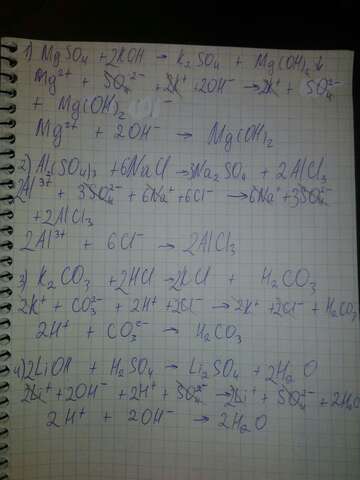 1) MgSO₄ + 2KOH → K₂SO₄ + Mg(OH)₂↓
Mg²⁺ + SO₄²⁻ + 2K⁺ + 2OH⁻ → 2K⁺ + SO₄²⁻
+ Mg(OH)₂
Mg²⁺ + 2OH⁻ → Mg(OH)₂
2) Al₂(SO₄)₃ + 6NaCl → 3Na₂SO₄ + 2AlCl₃
2Al³⁺ + 3SO₄²⁻ + 6Na⁺ + 6Cl⁻ → 6Na⁺ + 3SO₄²⁻
+ 2AlCl₃
2Al³⁺ + 6Cl⁻ → 2AlCl₃
3) K₂CO₃ + 2HCl → 2KCl + H₂CO₃
2K⁺ + CO₃²⁻ + 2H⁺ + 2Cl⁻ → 2K⁺ + 2Cl⁻ + H₂CO₃
2H⁺ + CO₃²⁻ → H₂CO₃
4) 2LiOH + H₂SO₄ → Li₂SO₄ + 2H₂O
2Li⁺ + 2OH⁻ + 2H⁺ + SO₄²⁻ → 2Li⁺ + SO₄²⁻ + 2H₂O
2H⁺ + 2OH⁻ → 2H₂O